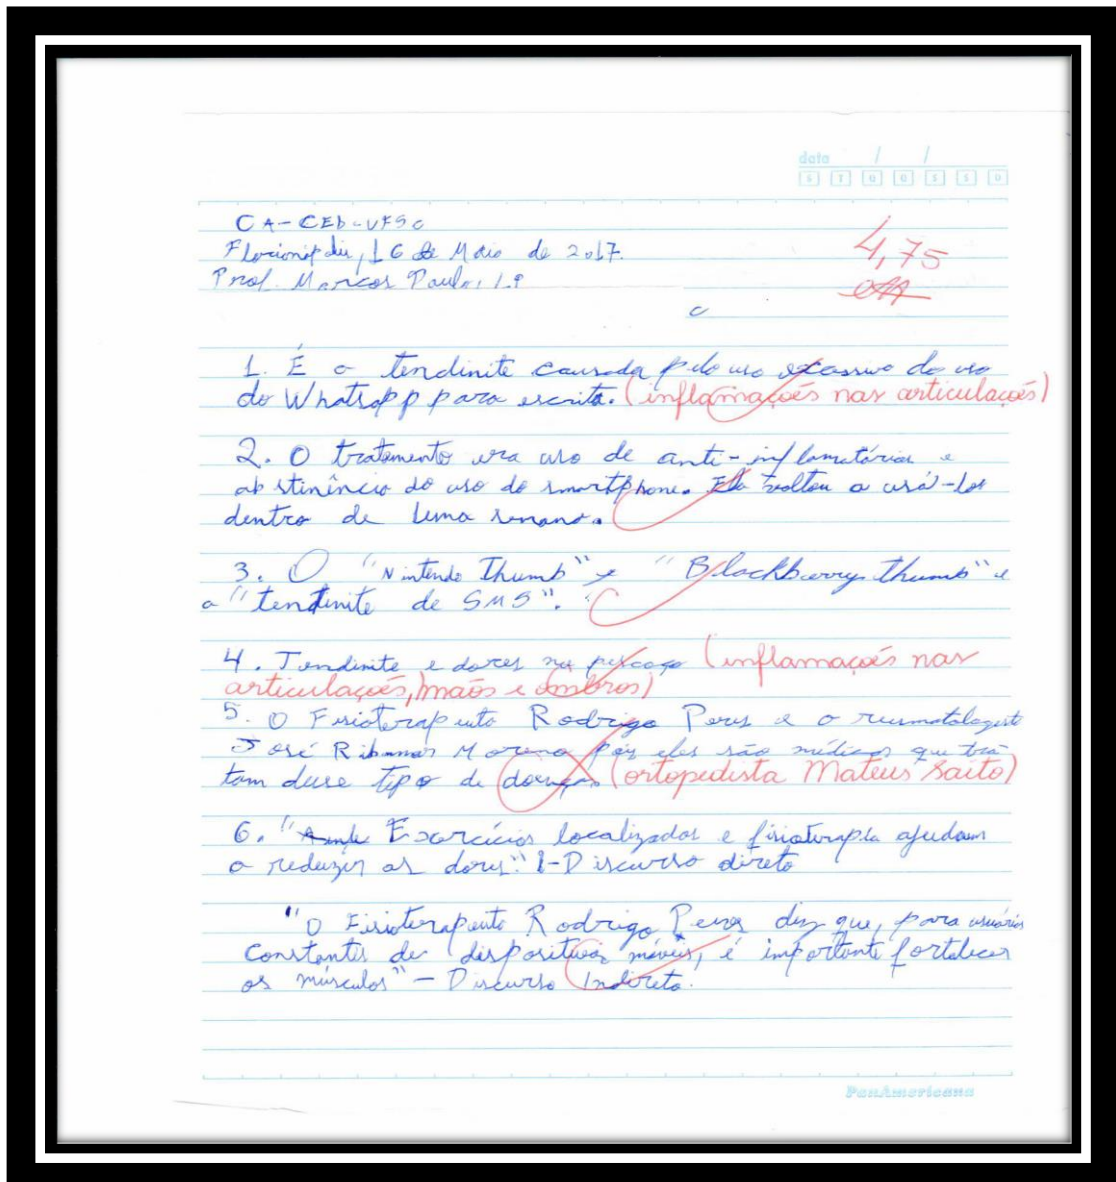 data / /
S T Q Q S S D
CA-CEb-UFSC
Florianópolis, 16 de Maio de 2017.
Prof. Marcos Paulo,
4,75
1. É a tendinite causada pelo uso excassivo do uso
do Whatsapp para escrita. (inflamações nas articulações)
2. O tratamento era uso de anti-inflamatórios e
abstinência do uso do smartphone. Ela voltou a usá-los
dentro de uma semana.
3. O "Nintendo Thumb" e "Blackberry thumb" e
a "tendinite de SMS".
4. Tendinite e dores no pescoço (inflamações nas
articulações, mãos e ombros)
5. O Fisioterapeuta Rodrigo Peres e o reumatologista
José Ribamar Moreno pois eles são médicos que tra
tam desse tipo de doenças (ortopedista Mateus Saito)
6. " Exercícios localizados e fisioterapia ajudam
a reduzir as dores." - Discurso direto
"O Fisioterapeuta Rodrigo Peres diz que, para usuários
constantes de dispositivos móveis, é importante fortalecer
os músculos" - Discurso Indireto.
PanAmericana